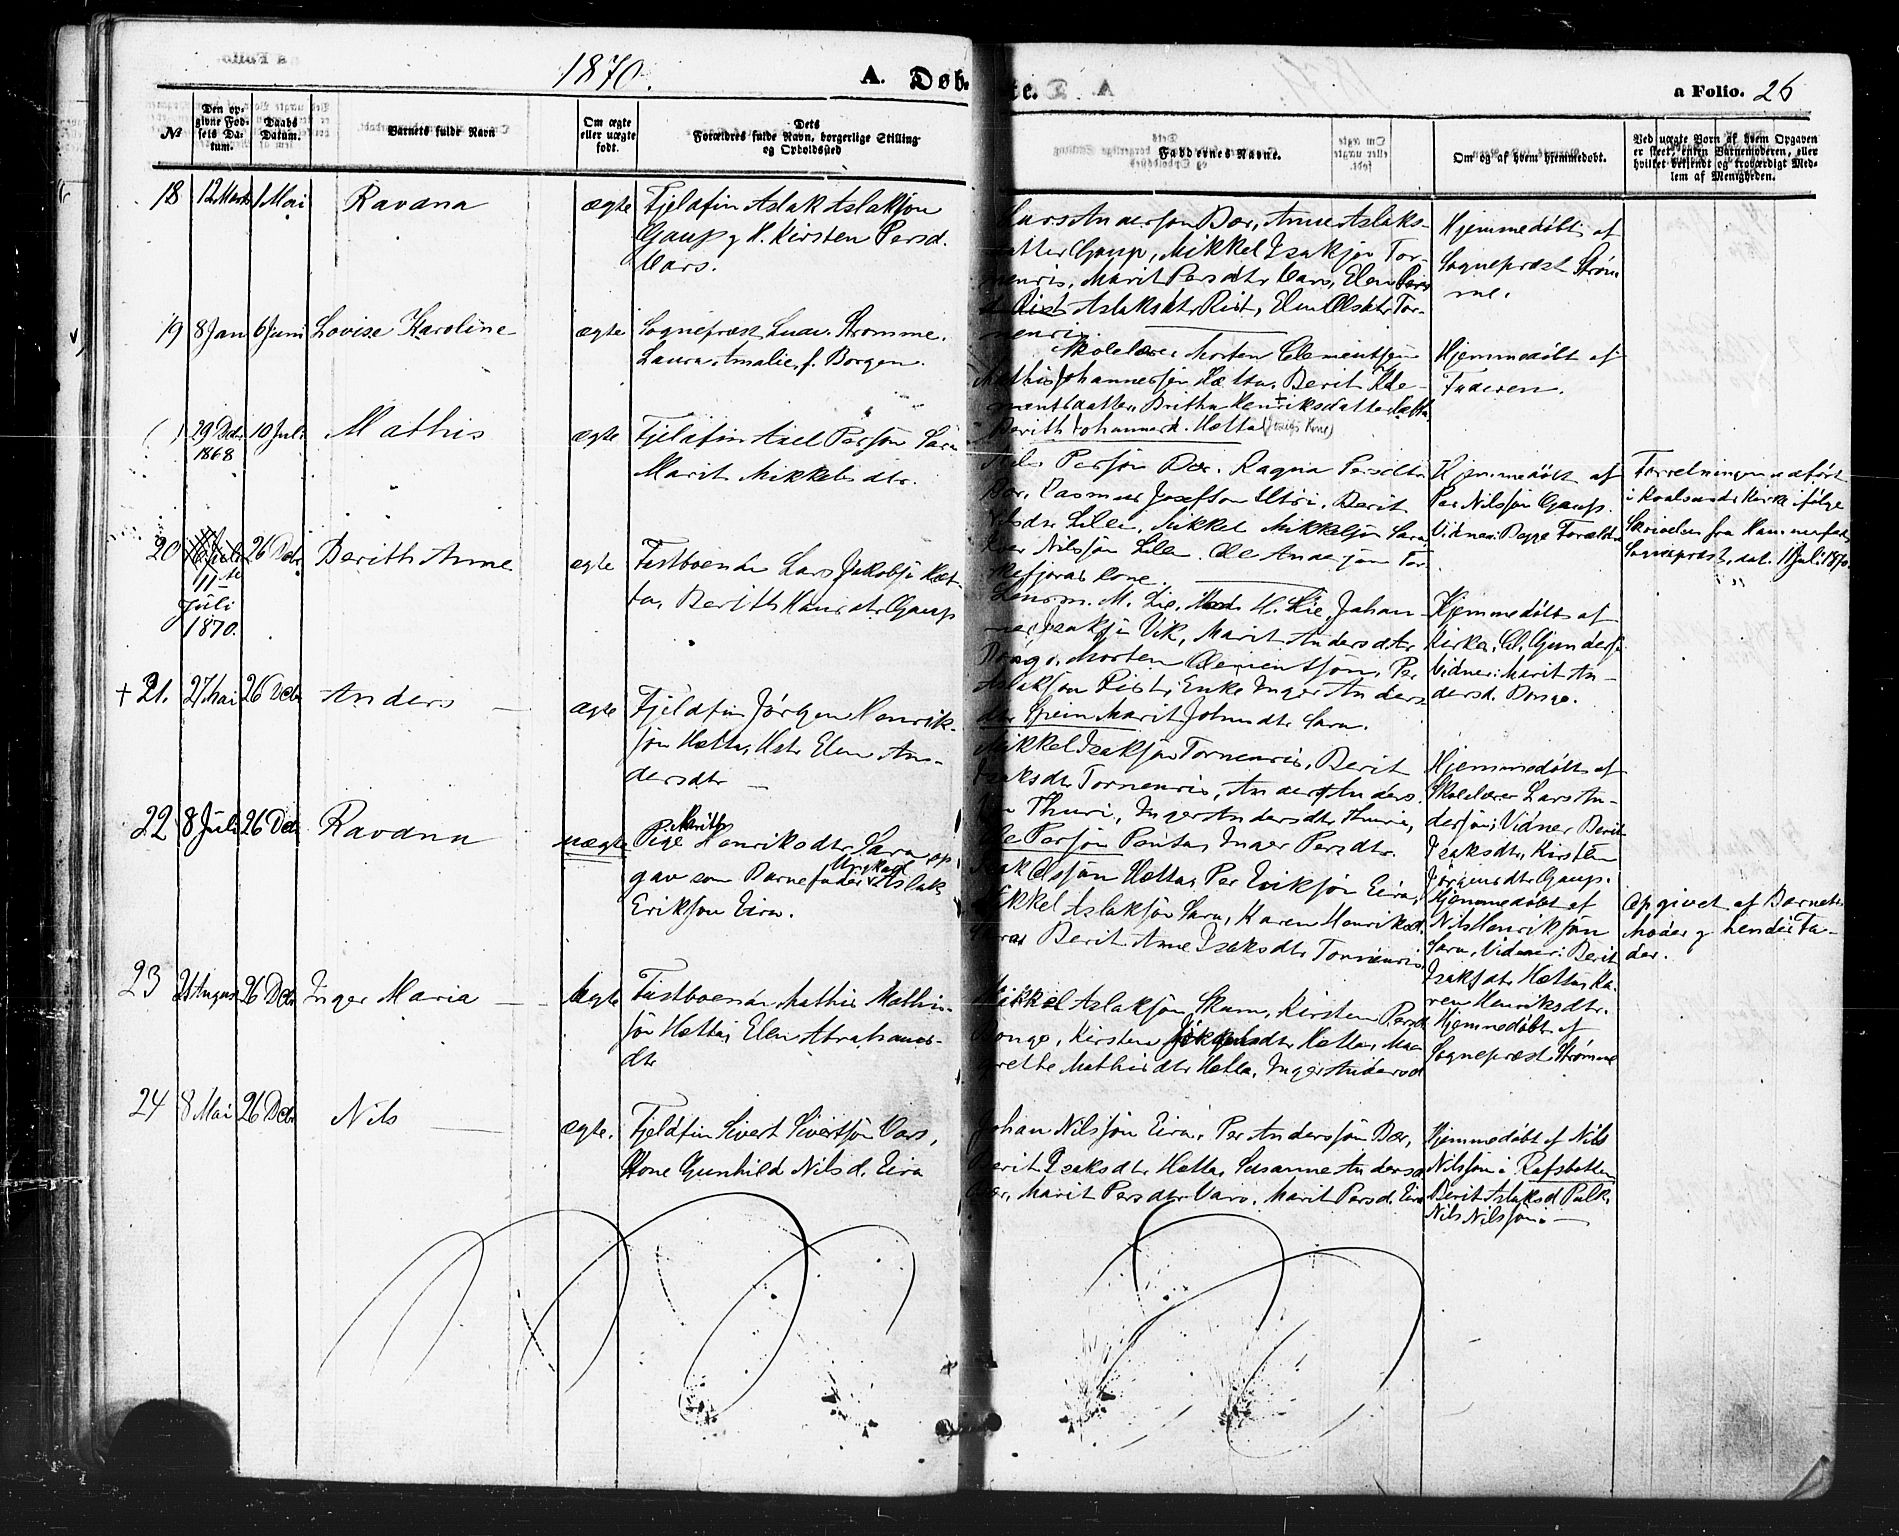 1870.
A. Døb-
te.
a Folio. 26
№
Den op-
givne Fød-
sels Da-
tum.
Daabs
Datum.
Barnets fulde Navn
Om ægte
eller uægte
født.
Dets
Forældres fulde Navn, borgerlige Stilling
og Opholdssted
Faddernes Navne.
Om og af hvem hjemmedøbt.
Ved uægte Børn af hvem Opgaven
er skeet, enten Barnemoderen, eller
hvilket bekjendt og troværdigt Med-
lem af Menigheden.
18
12 Marts
1 Mai
Ravdna
ægte
Fjeldfin Aslak Aslaksøn
Gaup g H. Kirsten Persd.
Vars.
Lars Andersøn Bær, Anne Aslaks-
datter Gaup, Mikkel Isaksøn Tor-
nenris, Marit Persdtr Vars, Elen Pers
Aslaksdtr Rist, Elen Olsdtr Tor-
nenris.
Hjemmedøbt af
Sognepræst Strøm
me.
19
8 Jan
6 Juni
Lovise Karoline
ægte
Sognepræst Ludv. Strømme.
Laura Amalie f. Borgen.
Skolelærer Morten Clementsøn
Mathis Johannessøn Hætta, Berit Kle-
mentsdatter, Britha Henriksdatter Hætta,
Berith Johannesd. Hætta
Hjemmedøbt af
Faderen.
( )
29 Dcbr
1868
10 Juli
Mathis
ægte
Fjeldfin Axel Persøn Sara
Marit Mikkelsdtr.
Nils Persøn Bær. Ragna Persdtr
Bær, Rasmus Josefson Utsi, Berit
Lile, Mikkel Mikkelsøn Sara
Iver Nilssøn Lile. Ole Andersøn Tor
kefjords Kone.
Hjemmedøbt af
Per Nilssøn Gaup.
Vidner: Begge Forældre
Forretningen udført
i Kvalsunds Kirke ifølge
Skrivelse fra Hammerfest
Sognepræst, dat. 11 Juli 1870.
20
11te
Juli
1870.
26 Dcbr.
Berith Anne
ægte
Fastboende Lars Jakobsø Hæt-
ta, Berith Hansdtr Gaup
Lensm. M. Lie, Mad. H. Lie, Johan-
nes Isaksøn Vik, Marit Andersdtr
Dongo, Morten Clementsøn, Per
Aslaksøn Rist, Enke Inger Anders
dtr Spein Marit Johnsdtr Sara.
Hjemmedøbt af
Kirkes. Cl. Gundersø
Vidner: Marit An-
dersd. Dongo.
+ 21.
27 Mai
26 Dcbr
Anders
ægte
Fjeldfin Jørgen Henrik-
søn Hætta, Hstr Elen An-
dersdtr
Mikkel Isaksøn Tornenris, Berit
Isaksdtr Tornenris, Anders Anders-
søn Thuri, Inger Andersdtr Thuri,
Ole Persøn Pentha, Inger Persdtr.
Hjemmedøbt af
Skolelærer Lars An-
dersøn; Vidner Berit
Isaksdtr, Kirsten
Jørgensdtr Gaup.
22
8 Juli
26 Dcbr
Ravdna
uægte
Pige Marith Henriksdtr Sara op
gav som Barnefader Ungkarl Aslak
Eriksøn Eira.
Isak Olssøn Hætta, Per Eriksøn Eira,
Mikkel Aslaksøn Sara, Karen Henriksd.
Sara Berit Anne Isaksdtr Tornenris
Hjemmedøbt af
Nils Henriksøn
Sara, Vidner: Berit
Isaksdtr Hætta, Ka-
ren Henriksdtr.
Opgivet af Barnets
Moder g hendes Fa-
der.
23
21 August
26 Dcbr
Inger Maria
ægte
Fastboende Mathis Mathis-
søn Hætta, Elen Abrahams-
dtr
Mikkel Aslaksøn Skum, Kirsten Persdtr
Dongo, Kirsten Hætta, Mar
grethe Mathisdtr Hætta, Inger Andersd
Hjemmedøbt af
Sognepræst Strømme
24
8 Mai
26 Dcbr
Nils
ægte.
Fjeldfin Sivert Sivertsøn Vars,
Kone Gunhild Nilsd. Eira
Johan Nilssøn Eira, Per Anderssøn Bær,
Berit Isaksdtr Hætta, Susanne Andersd
Bær, Marit Persdtr Vars, Marit Persd. Eira
Hjemmedøbt af Nils
Nilssøn i Rafsbotten
Berit Aslaksd Pulk,
Nils Nilssøn.